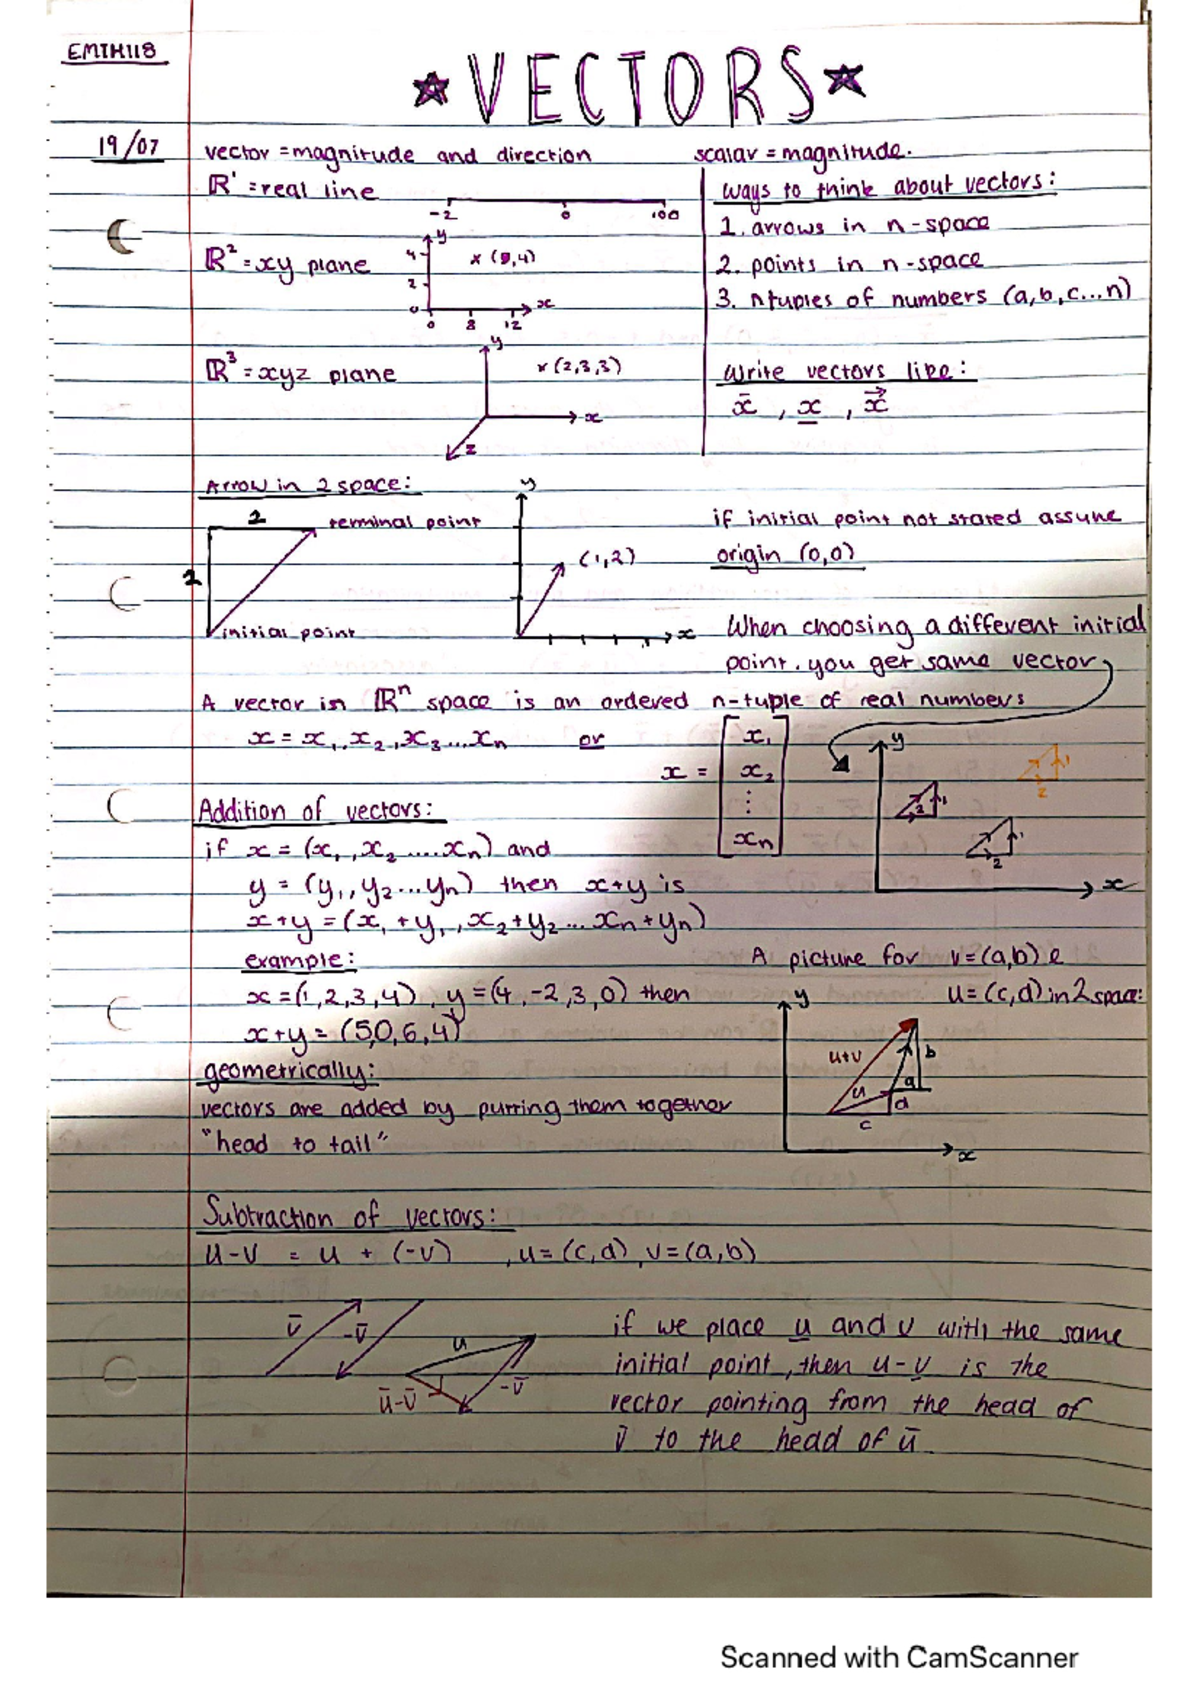 EMTH118
★VECTORS★
19/07
vector = magnitude and direction
scalar = magnitude.
ℝ¹ = real line
-2 0 100
ℝ² = xy plane
y
4
2
0
x (9,4)
0 8 12 x
ℝ³ = xyz plane
y
x (2,3,3)
x
z
ways to think about vectors:
1. arrows in n-space
2. points in n-space
3. ntuples of numbers (a,b,c...n)
Write vectors like:
x̄ , x̲ , x⃗
Arrow in 2 space:
2
terminal point
2
initial point
y
(1,2)
x
if initial point not stated assume
origin (0,0)
When choosing a different initial
point, you get same vector
A vector in ℝⁿ space is an ordered n-tuple of real numbers
x = x₁, x₂, x₃...xₙ or
x = [x₁
x₂
⋮
xₙ]
y
2 1
2 1
2 1
x
Addition of vectors:
if x = (x₁, x₂.....xₙ) and
y = (y₁, y₂...yₙ) then x+y is
x+y = (x₁+y₁, x₂+y₂...xₙ+yₙ)
example:
x = (1,2,3,4), y = (4,-2,3,0) then
x+y = (5,0,6,4)
geometrically:
vectors are added by putting them together
"head to tail"
A picture for v=(a,b) &
u=(c,d) in 2 space:
y
u+v
b
u
a
d
c
x
Subtraction of vectors:
u-v = u + (-v) , u=(c,d), v=(a,b)
v̄
-v̄
u
-v̄
ū-v̄
if we place u̲ and v with the same
initial point, then u-v̲ is the
vector pointing from the head of
v̄ to the head of ū.
Scanned with CamScanner